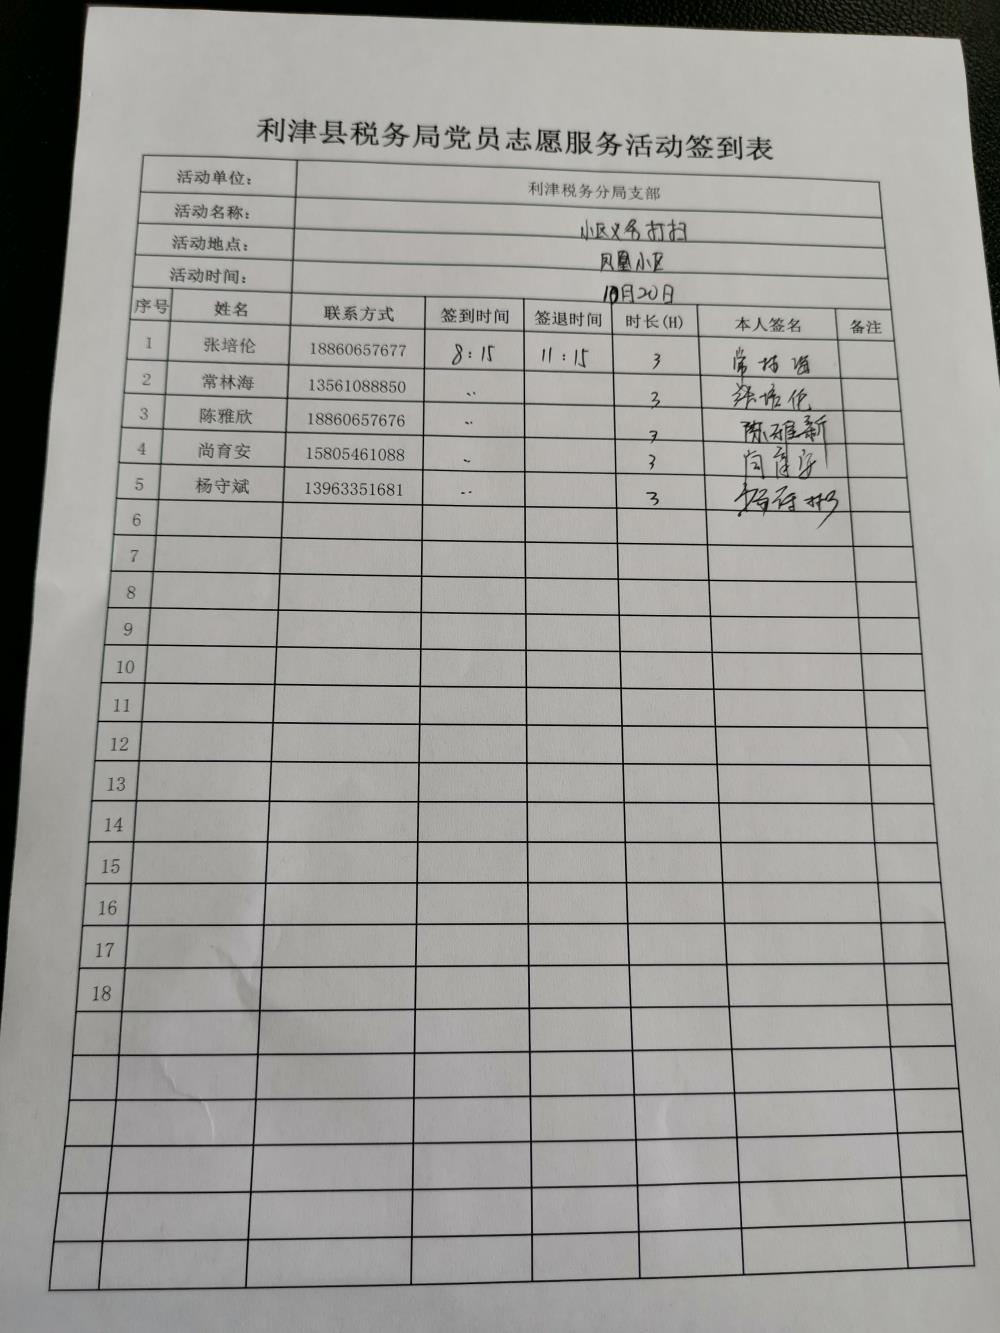 利津县税务局党员志愿服务活动签到表
活动单位： 利津税务分局支部
活动名称： 小区义务打扫
活动地点： 凤凰小区
活动时间： 10月20日
序号 姓名 联系方式 签到时间 签退时间 时长(H) 本人签名 备注
1 张培伦 18860657677 8:15 11:15 3 常林海
2 常林海 13561088850 .. 3 张培伦
3 陈雅欣 18860657676 .. 3 陈雅新
4 尚育安 15805461088 .. 3 尚育安
5 杨守斌 13963351681 .. 3
6
7
8
9
10
11
12
13
14
15
16
17
18